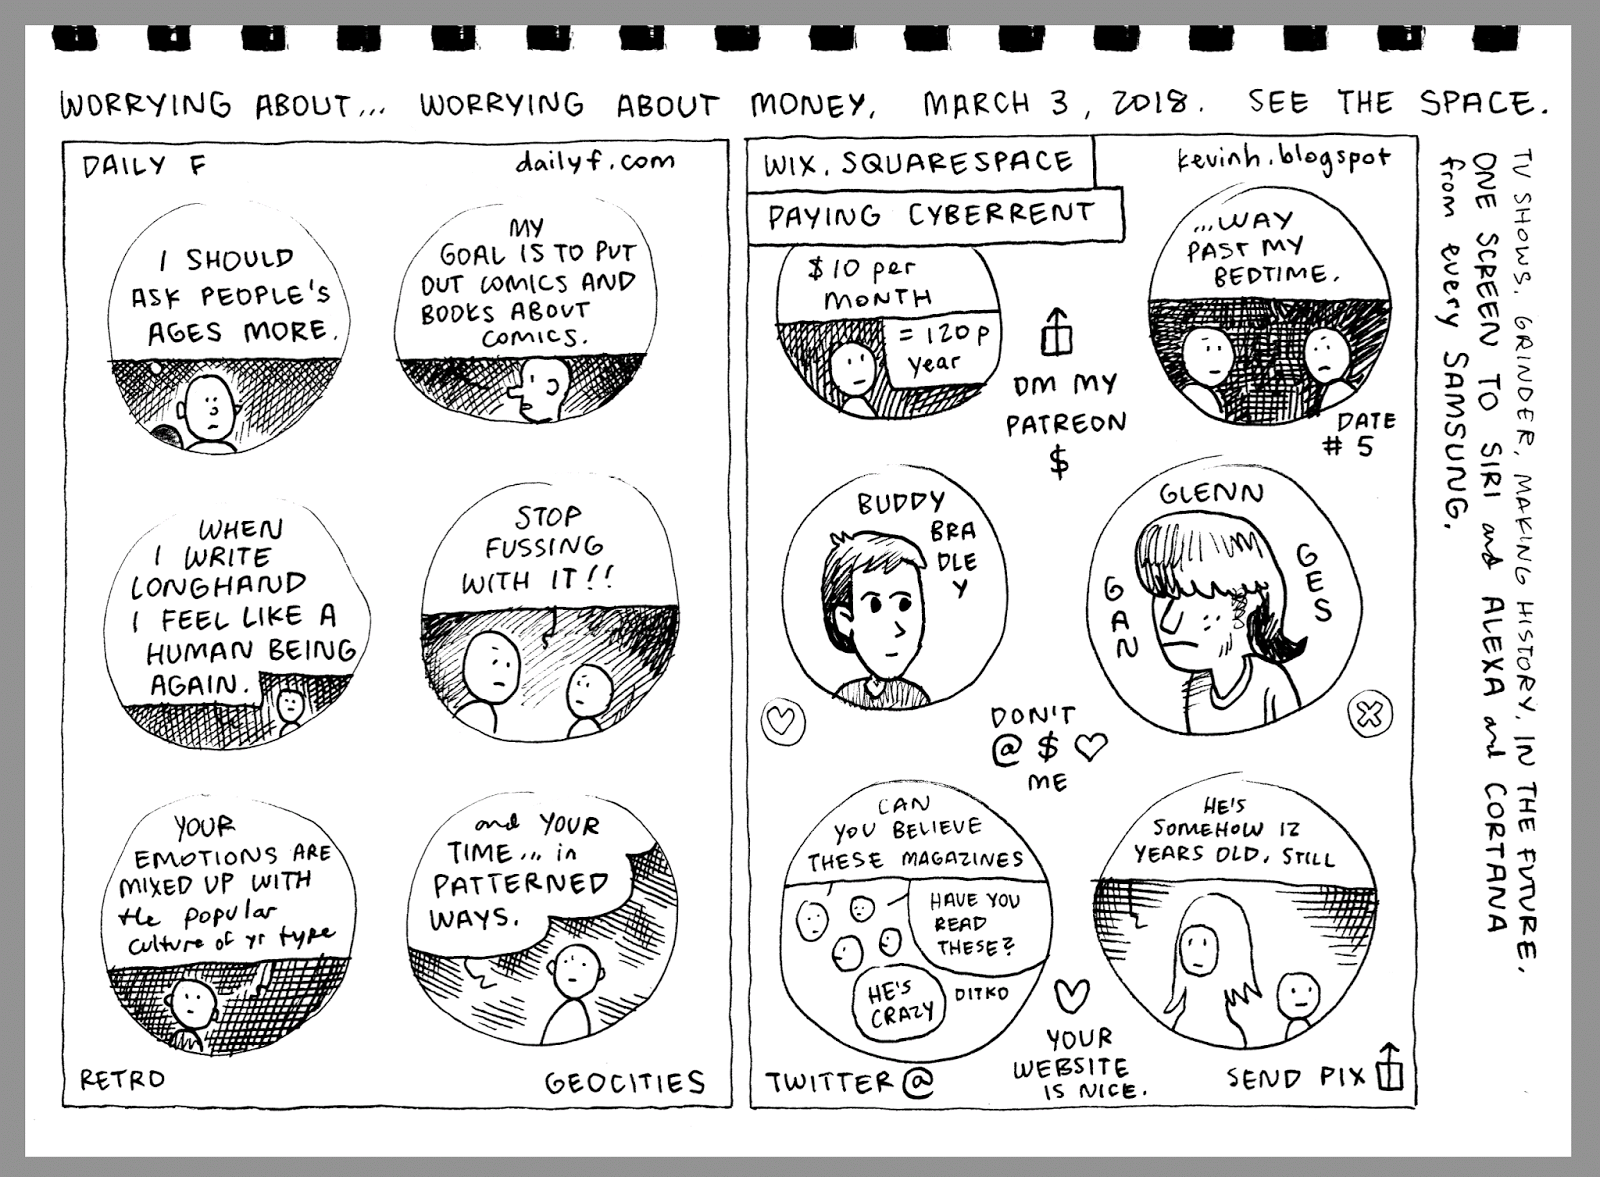 WORRYING ABOUT... WORRYING ABOUT MONEY. MARCH 3, 2018. SEE THE SPACE.
DAILY F
dailyf.com
I SHOULD
ASK PEOPLE'S
AGES MORE.
MY
GOAL IS TO PUT
OUT COMICS AND
BOOKS ABOUT
COMICS.
WHEN
I WRITE
LONGHAND
I FEEL LIKE A
HUMAN BEING
AGAIN.
STOP
FUSSING
WITH IT!!
YOUR
EMOTIONS ARE
MIXED UP WITH
the popular
culture of yr type
and YOUR
TIME... in
PATTERNED
WAYS.
RETRO
GEOCITIES
WIX. SQUARESPACE
kevinh.blogspot
PAYING CYBERRENT
$10 per
MONTH
= 120 p
year
DM MY
PATREON
$
...WAY
PAST MY
BEDTIME.
DATE
# 5
BUDDY
BRA
DLE
Y
GLENN
GAN
GES
DON'T
@ $ ♡
ME
CAN
YOU BELIEVE
THESE MAGAZINES
HAVE YOU
READ
THESE?
HE'S
CRAZY
DITKO
HE'S
SOMEHOW 12
YEARS OLD. STILL
♡
YOUR
WEBSITE
IS NICE.
TWITTER @
SEND PIX
TV SHOWS. GRINDER, MAKING HISTORY. IN THE FUTURE.
ONE SCREEN TO SIRI and ALEXA and CORTANA
from every SAMSUNG.